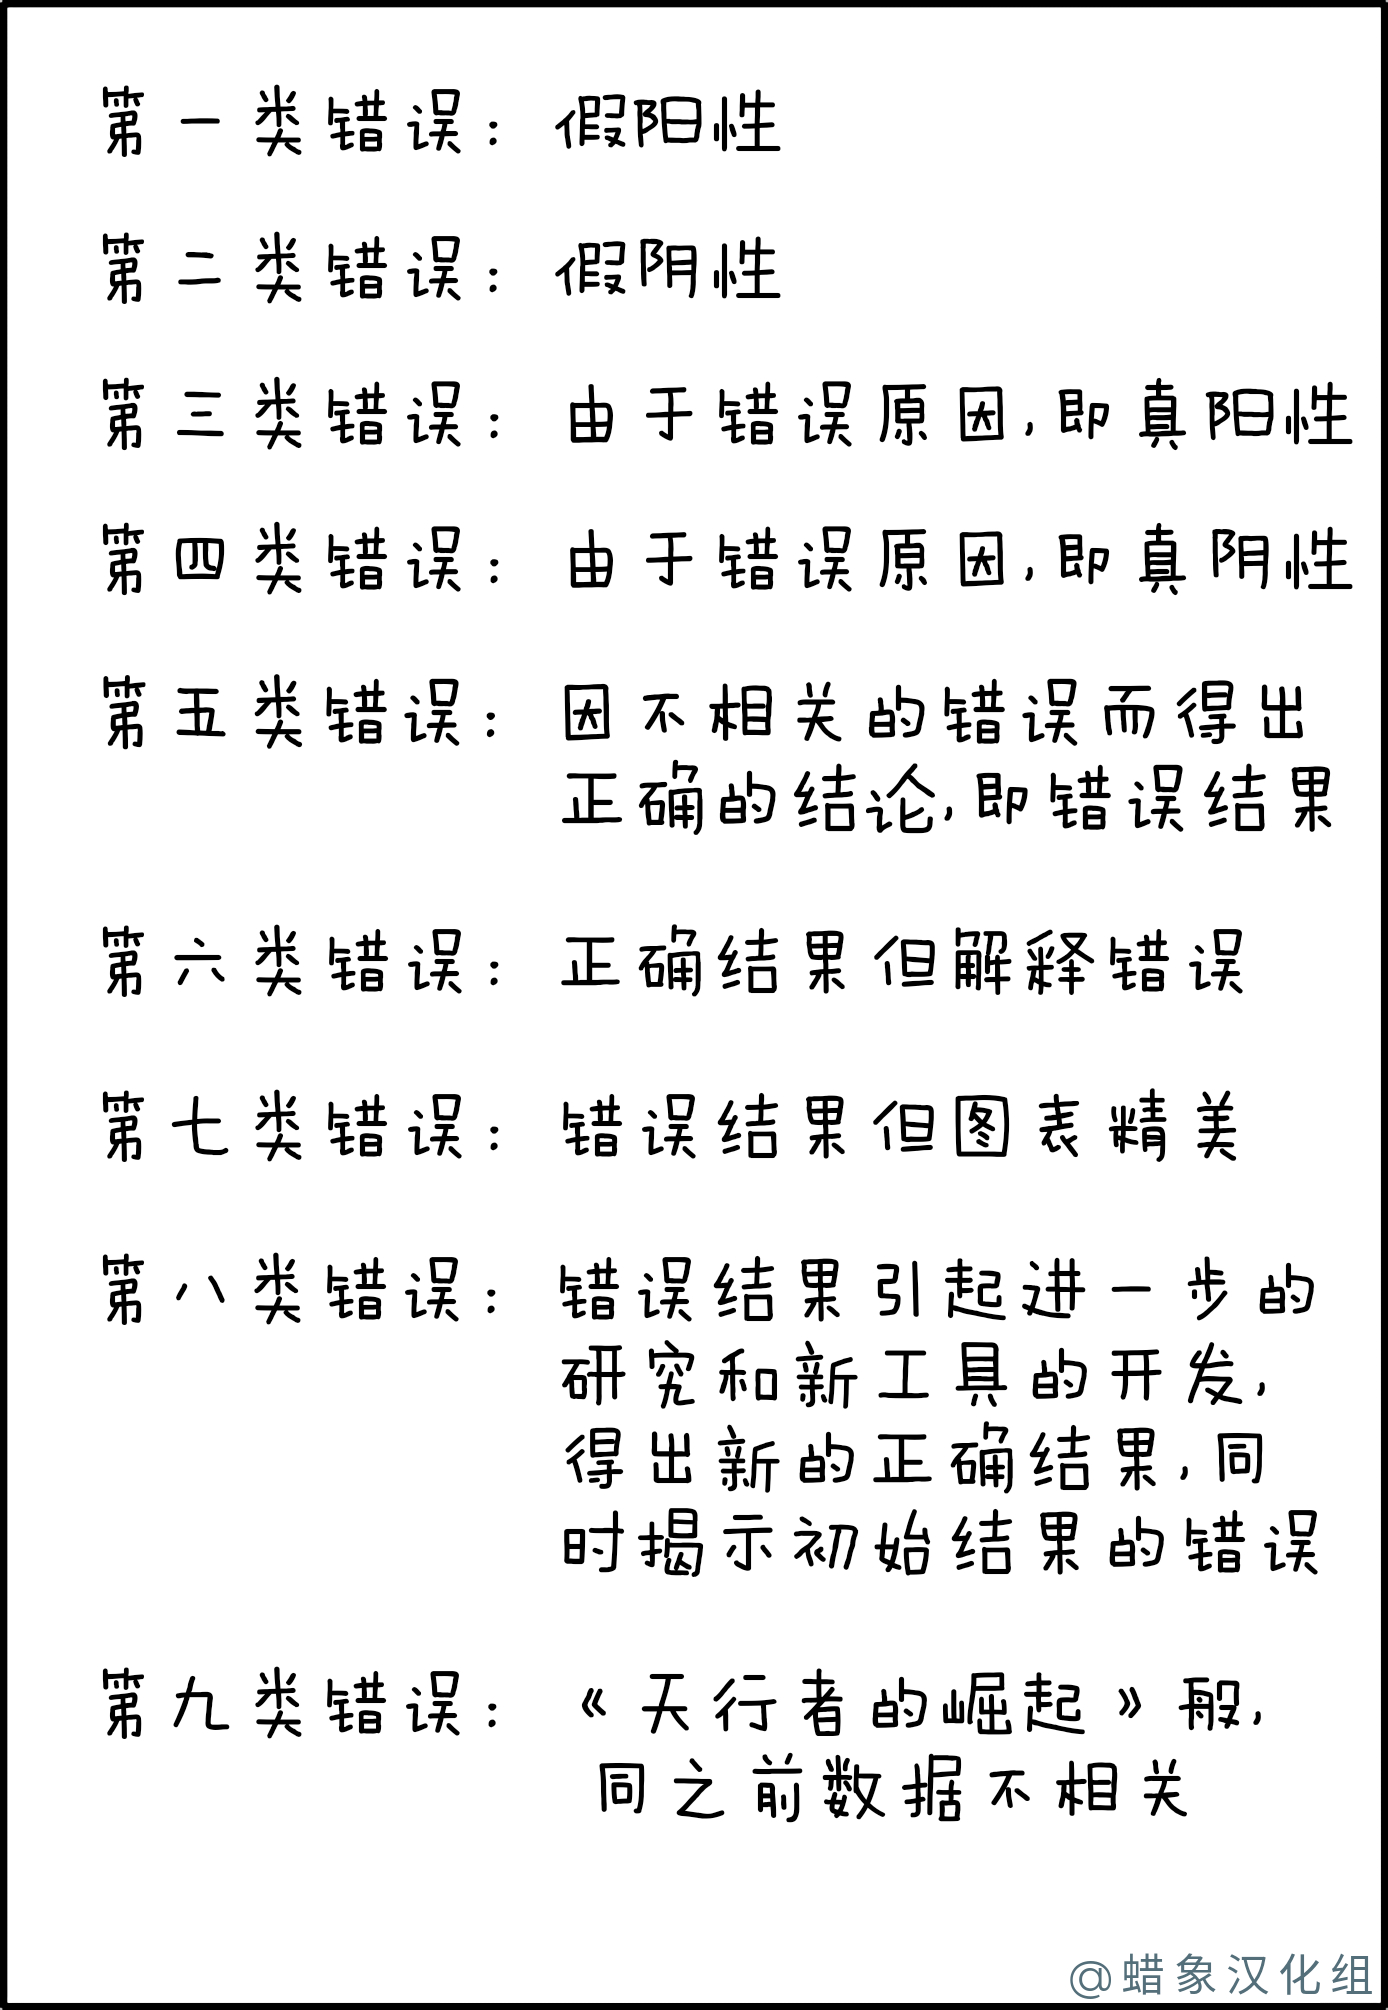 第一类错误: 假阳性
第二类错误: 假阴性
第三类错误: 由于错误原因,即真阳性
第四类错误: 由于错误原因,即真阴性
第五类错误: 因不相关的错误而得出
正确的结论,即错误结果
第六类错误: 正确结果但解释错误
第七类错误: 错误结果但图表精美
第八类错误: 错误结果引起进一步的
研究和新工具的开发,
得出新的正确结果,同
时揭示初始结果的错误
第九类错误: 《天行者的崛起》般,
同之前数据不相关
@蜡象汉化组